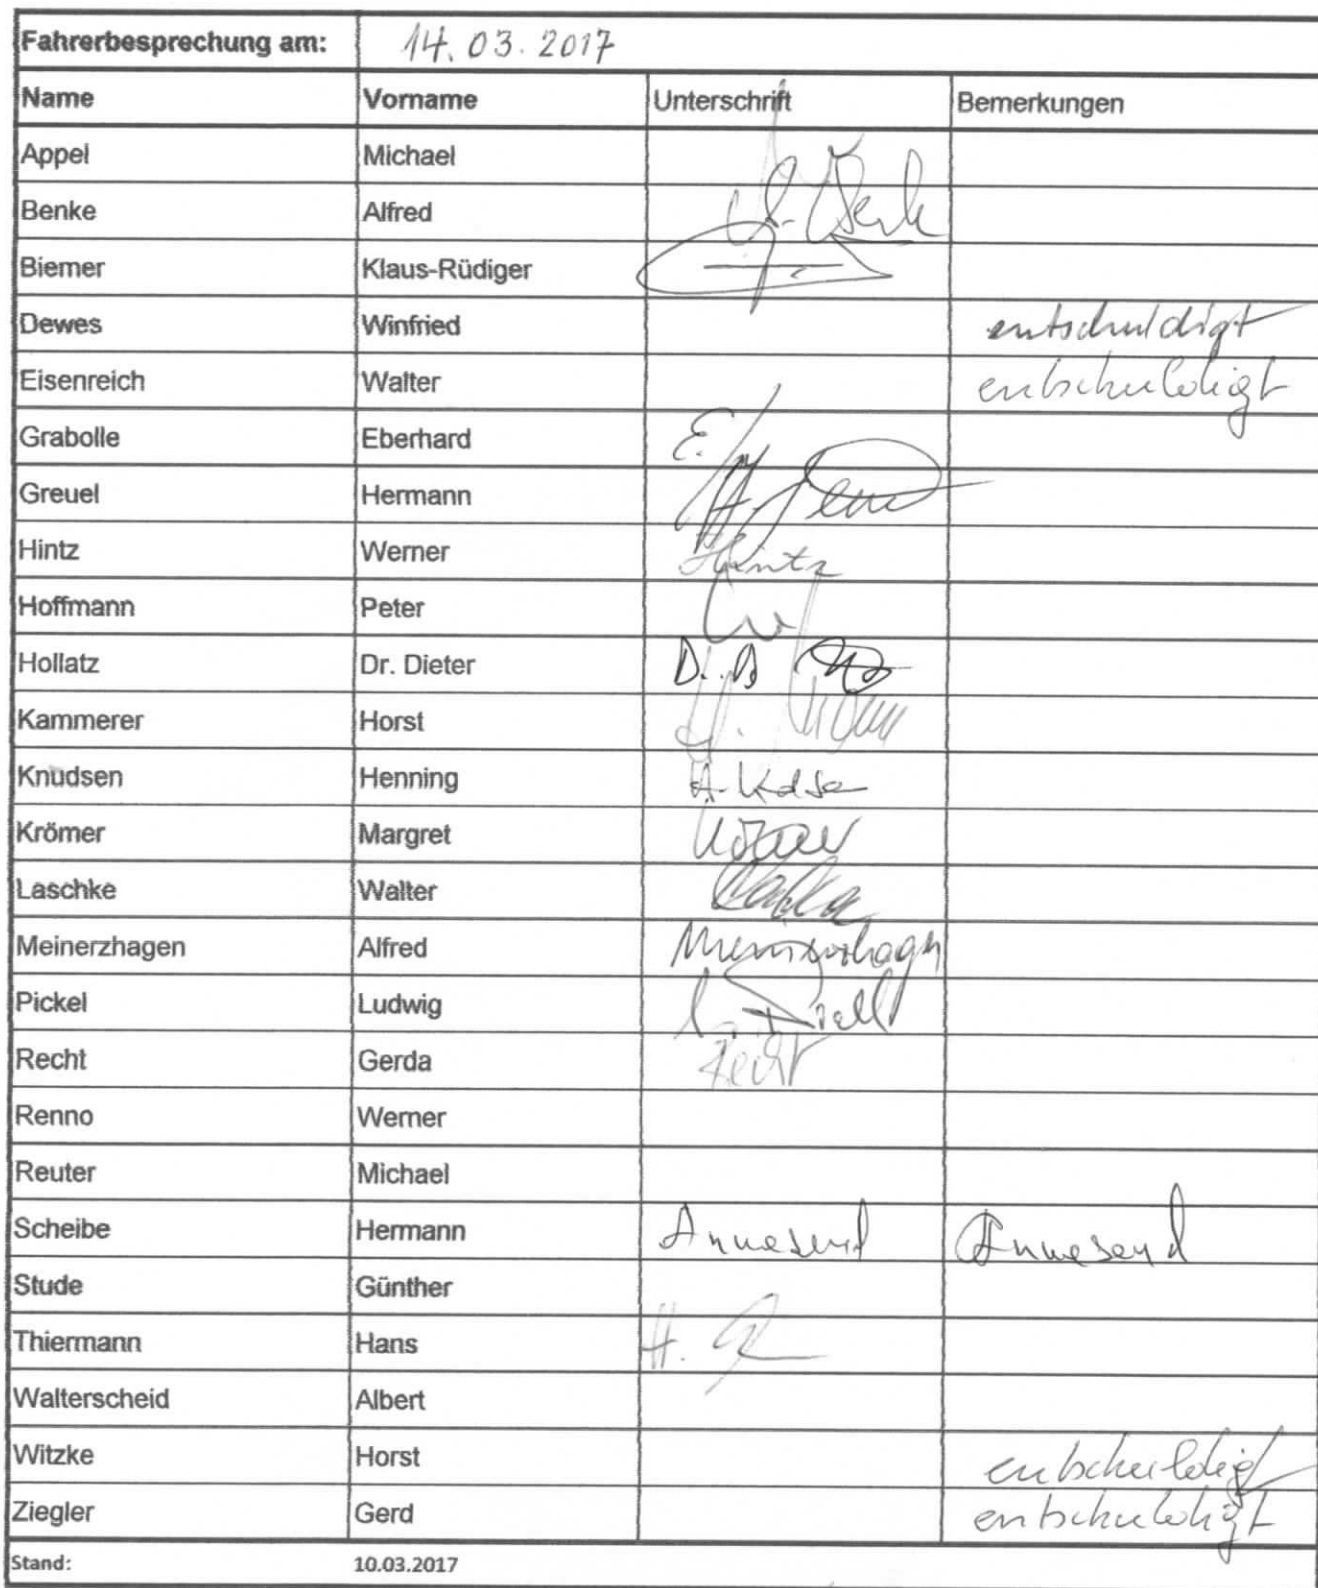 Fahrerbesprechung am: 14.03.2017
Name Vorname Unterschrift Bemerkungen
Appel Michael
Benke Alfred
Biemer Klaus-Rüdiger
Dewes Winfried entschuldigt
Eisenreich Walter entschuldigt
Grabolle Eberhard
Greuel Hermann
Hintz Werner Hintz
Hoffmann Peter
Hollatz Dr. Dieter
Kammerer Horst
Knudsen Henning
Krömer Margret
Laschke Walter
Meinerzhagen Alfred
Pickel Ludwig
Recht Gerda Recht
Renno Werner
Reuter Michael
Scheibe Hermann Anwesend Anwesend
Stude Günther
Thiermann Hans
Walterscheid Albert
Witzke Horst entschuldigt
Ziegler Gerd entschuldigt
Stand: 10.03.2017